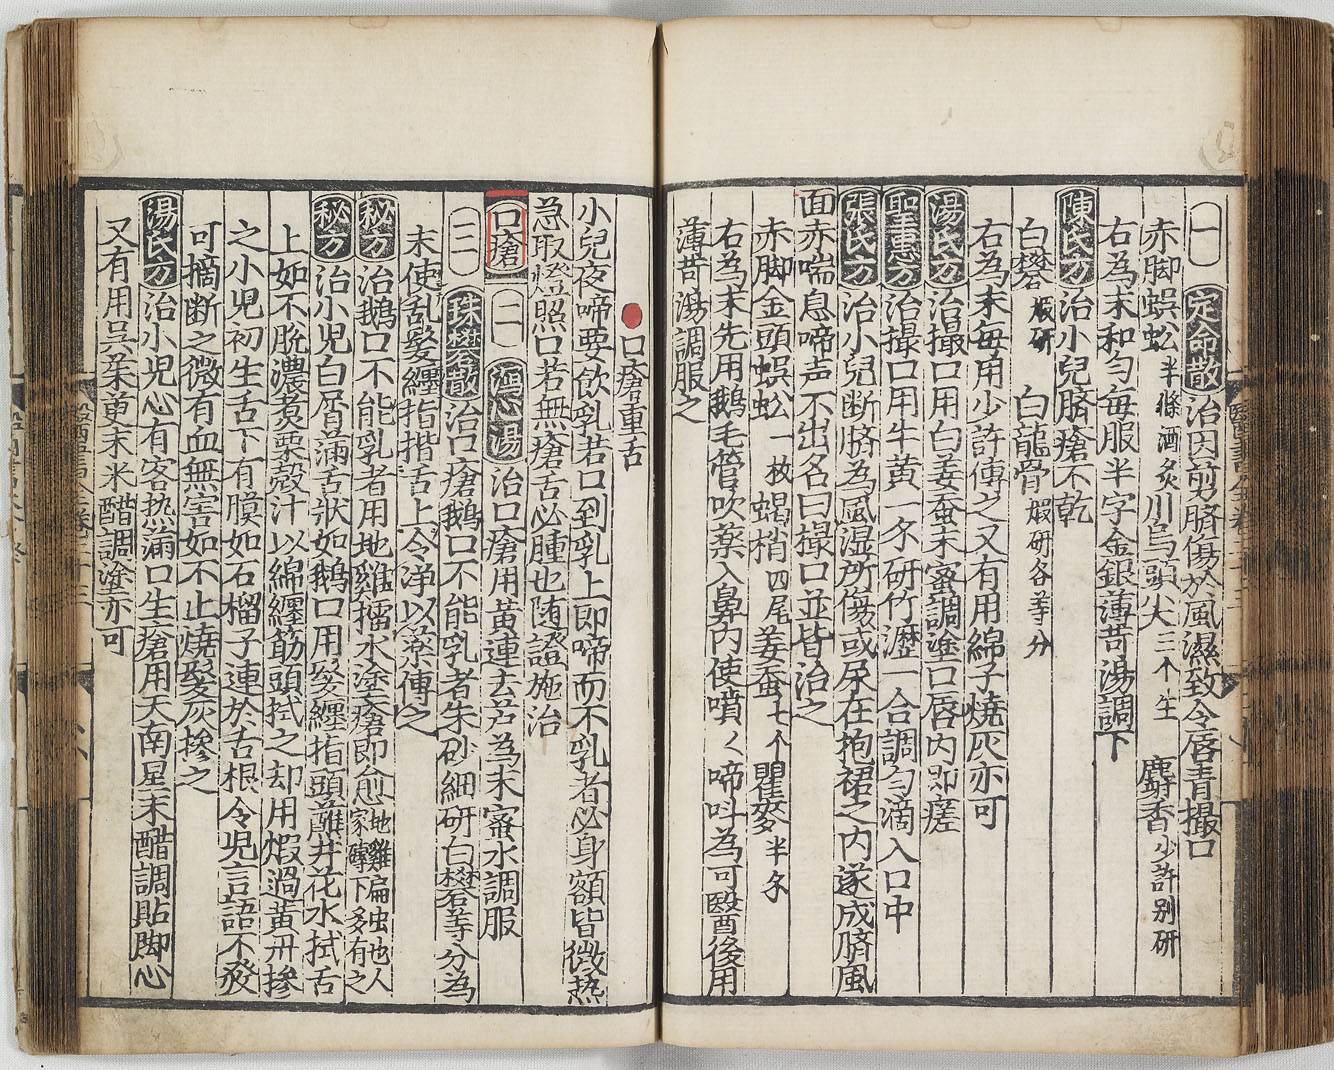 一 定命散 治因剪臍傷於風濕致令唇青撮口
赤脚蜈蚣半條酒炙 川烏頭尖三个生 麝香少許别研
右為末和勻每服半字金銀薄荷湯調下
陳氏方 治小兒臍瘡不乾
白礬煅研 白龍骨煅研各等分
右為末每用少許傅之又有用綿子燒灰亦可
湯氏方 治撮口用白姜蚕末蜜調塗口唇内即瘥
聖惠方 治撮口用牛黄一分研竹瀝一合調勻滴入口中
張氏方 治小兒断臍為風湿所傷或尿在抱裙之内遂成臍風
面赤喘息啼声不出名曰撮口並皆治之
赤脚金頭蜈蚣一枚 蝎梢四尾 姜蚕七个 瞿麥半分
右為末先用鵝毛管吹藥入鼻内使噴〻啼呌為可毉後用
薄荷湯調服之
口瘡重舌
小兒夜啼要飲乳若口到乳上即啼而不乳者必身額皆微熱
急取燈照口若無瘡舌必腫也随證施治
口瘡 一 瀉心湯 治口瘡用黃連去芦為末蜜水調服
二 珠礬散 治口瘡鵝口不能乳者朱砂細研白礬等分為
末使乱髮纏指揩舌上令浄以藥傅之
秘方 治鵝口不能乳者用地雞擂水塗瘡即愈地雞扁虫也人家磚下多有之
秘方 治小児白屑滿舌狀如鵝口用髮纏指頭蘸井花水拭舌
上如不脫濃煑粟殼汁以綿纏筯頭拭之却用煅過黃丹摻
之小児初生舌下有膜如石榴子連於舌根令児言語不發
可摘断之微有血無害如不止燒髮灰摻之
湯氏方 治小児心有客热滿口生瘡用天南星末醋調貼脚心
又有用吳茱萸末米醋調塗亦可